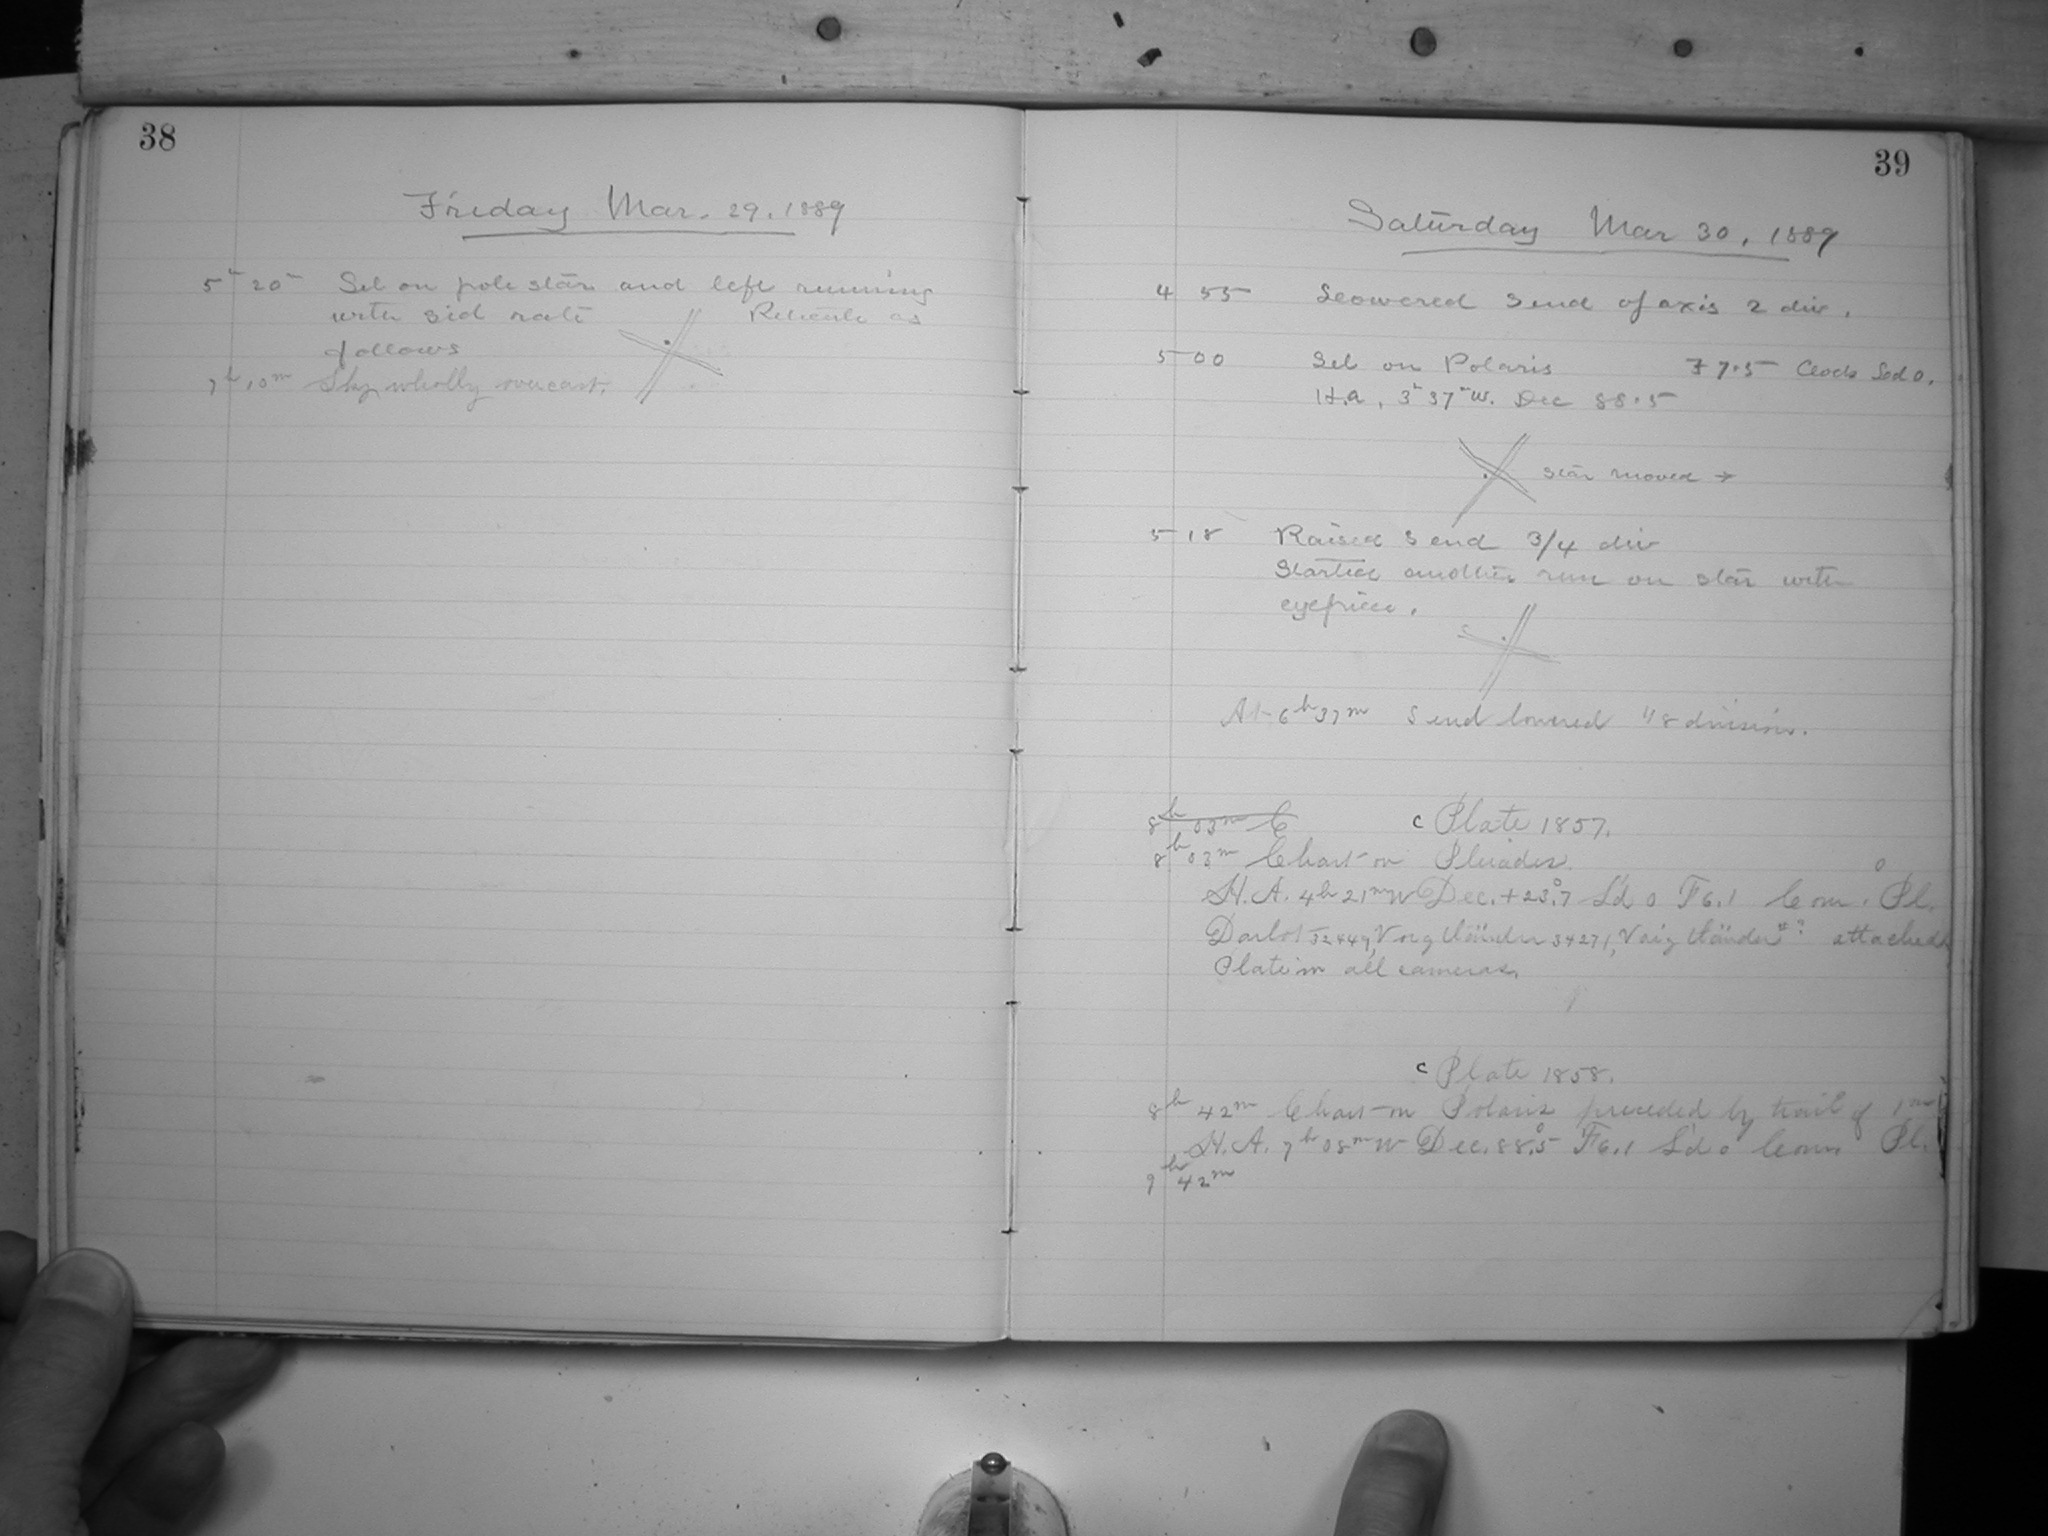 38
Friday Mar. 29, 1889
5h 20m Set on pole star and left running
with sid rate Reticule as
follows
7h 10m Sky wholly overcast.
39
Saturday Mar 30, 1889
4 55 Lowered S end of axis 2 div.
5 00 Set on Polaris F 7.5 Clock Sid 0.
H.A. 3h 37m W. Dec 88.5
star moved →
5 18 Raised S end 3/4 div
Started another run on star with
eyepiece.
At 6h 37m S end lowered 1/8 division.
8h 03m C c Plate 1857.
8h 03m Chart on Pleiades.
H.A. 4h 21m W Dec. +23°.7 S'd 0 F6.1 Com. Pl.
Darlot 32449, Voigtländer 34271, Voigtländer #? attached
Plate in all cameras.
c Plate 1858.
8h 42m Chart on Polaris preceded by trail of 1m
H.A. 7h 08m W Dec. 88°.5 F6.1 S'd 0 Com. Pl.
9h 42m